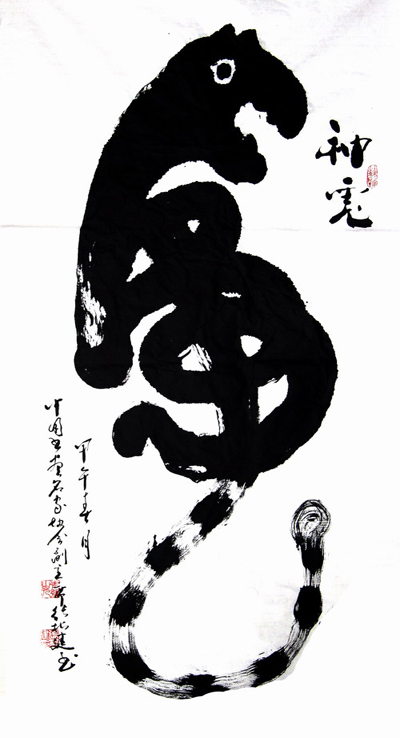 神虎
虎
甲午春月
中国书画名家协会副主席